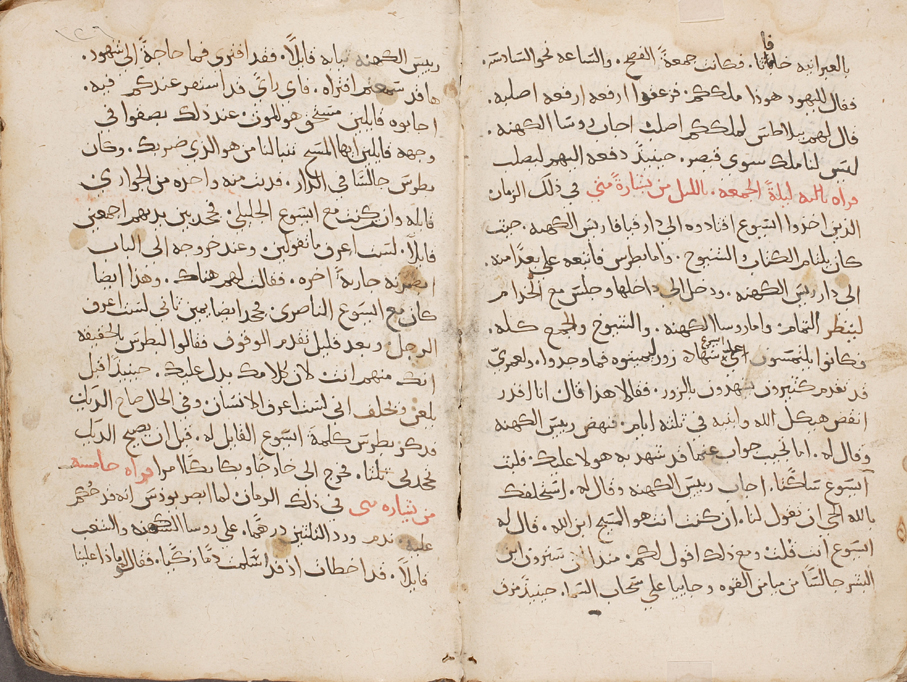 بالعبرانيه جاڡاثا. فكانت جمعة الفصح. والساعه نحو السادسه.
فقال لليهود هوذا ملككم. فزعقوا ارفعه ارفعه اصلبه.
قال لهم بيلاطس لملككم اصلب اجاب روسا الكهنه.
ليس لنا ملك سوى قيصر. حينيذ دفعه اليهم ليصلب
قراه ثالثه ليلة الجمعه. بالليل من بشارة متى في ذلك الزمان
الذين اخذوا ايسوع اقتادوه الى دار قيافا ريس الكهنه. حيث
كان يلتام الكتاب والشيوخ. واما بطرس فاتبعه على بعد منه.
الى دار ريس الكهنه. ودخل الى داخلها وجلس مع الخدام
لينظر التمام. واما روسا الكهنه. والشيوخ والجمع كله.
وكانوا يلتمسون على ايسوع شهادة زور ليميتوه فما وجدوا. ولعمري
قد تقدم كثيرون يشهدون بالزور. فقالا هذا قال انا اقدر
انقض هيكل الله وابنيه في ثلثة ايام. فنهض رييس الكهنه
وقال له. اما تجيب جواب عما قد شهد به هولا عليك. فلبث
ايسوع ساكتا. اجاب رييس الكهنه وقال له. استحلفك
بالله الحي ان تقول لنا. ان كنت انت هو المسيح ابن الله. قال له
ايسوع انت قلت ومع ذلك اقول لكم. منذ الان سترون ابن
البشر جالسا من ميامن القوه وجاييا على سحاب السما. حينيذ مزق
رييس الكهنه ثيابه قايلا. فقد افترى فما حاجة الى شهود.
ها قد سمعتم افتراه. فاي راي قد استقر عندكم فيه.
اجابوه قايلين مستحق هو للموت. عند ذلك بصقوا في
وجهه قايلين ايها المسيح تنبا لنا من هو الذي ضربك. وكان
بطرس جالسا في الدار. فدنت منه واحده من الجواري
قايله وانت كنت مع ايسوع الجليلي. فجحد بين يديهم اجمعين
قايلا. لست اعرف ما تقولين. وعند خروجه الى الباب
ابصرته جارية اخره. فقالت لهم هناك. وهذا ايضا
كان مع ايسوع الناصري. فجحد ايضا بيمين ثاني لست اعرف
الرجل. وبعد قليل تقدم الوقوف فقالوا لبطرس بالحقيقه
انك منهم انت لان كلامك يدل عليك. حينيذ اقبل
يلعن ويحلف اني لست اعرف الانسان وفي الحال صاح الديك
فذكر بطرس كلمة ايسوع القايل له. قبل ان يصيح الديك
تجحدني ثلثا. فخرج الى خارج وبكا بكا مرا قراه خامسه
من بشاره متى في ذلك الزمان لما ابصر يوذس انه قد حكم
عليه. ندم ورد الثلثين درهما. على روسا الكهنه والشعب
قايلا. قد اخطات اذ قد اسلمت دما زكيا. فقالوا ماذا علينا